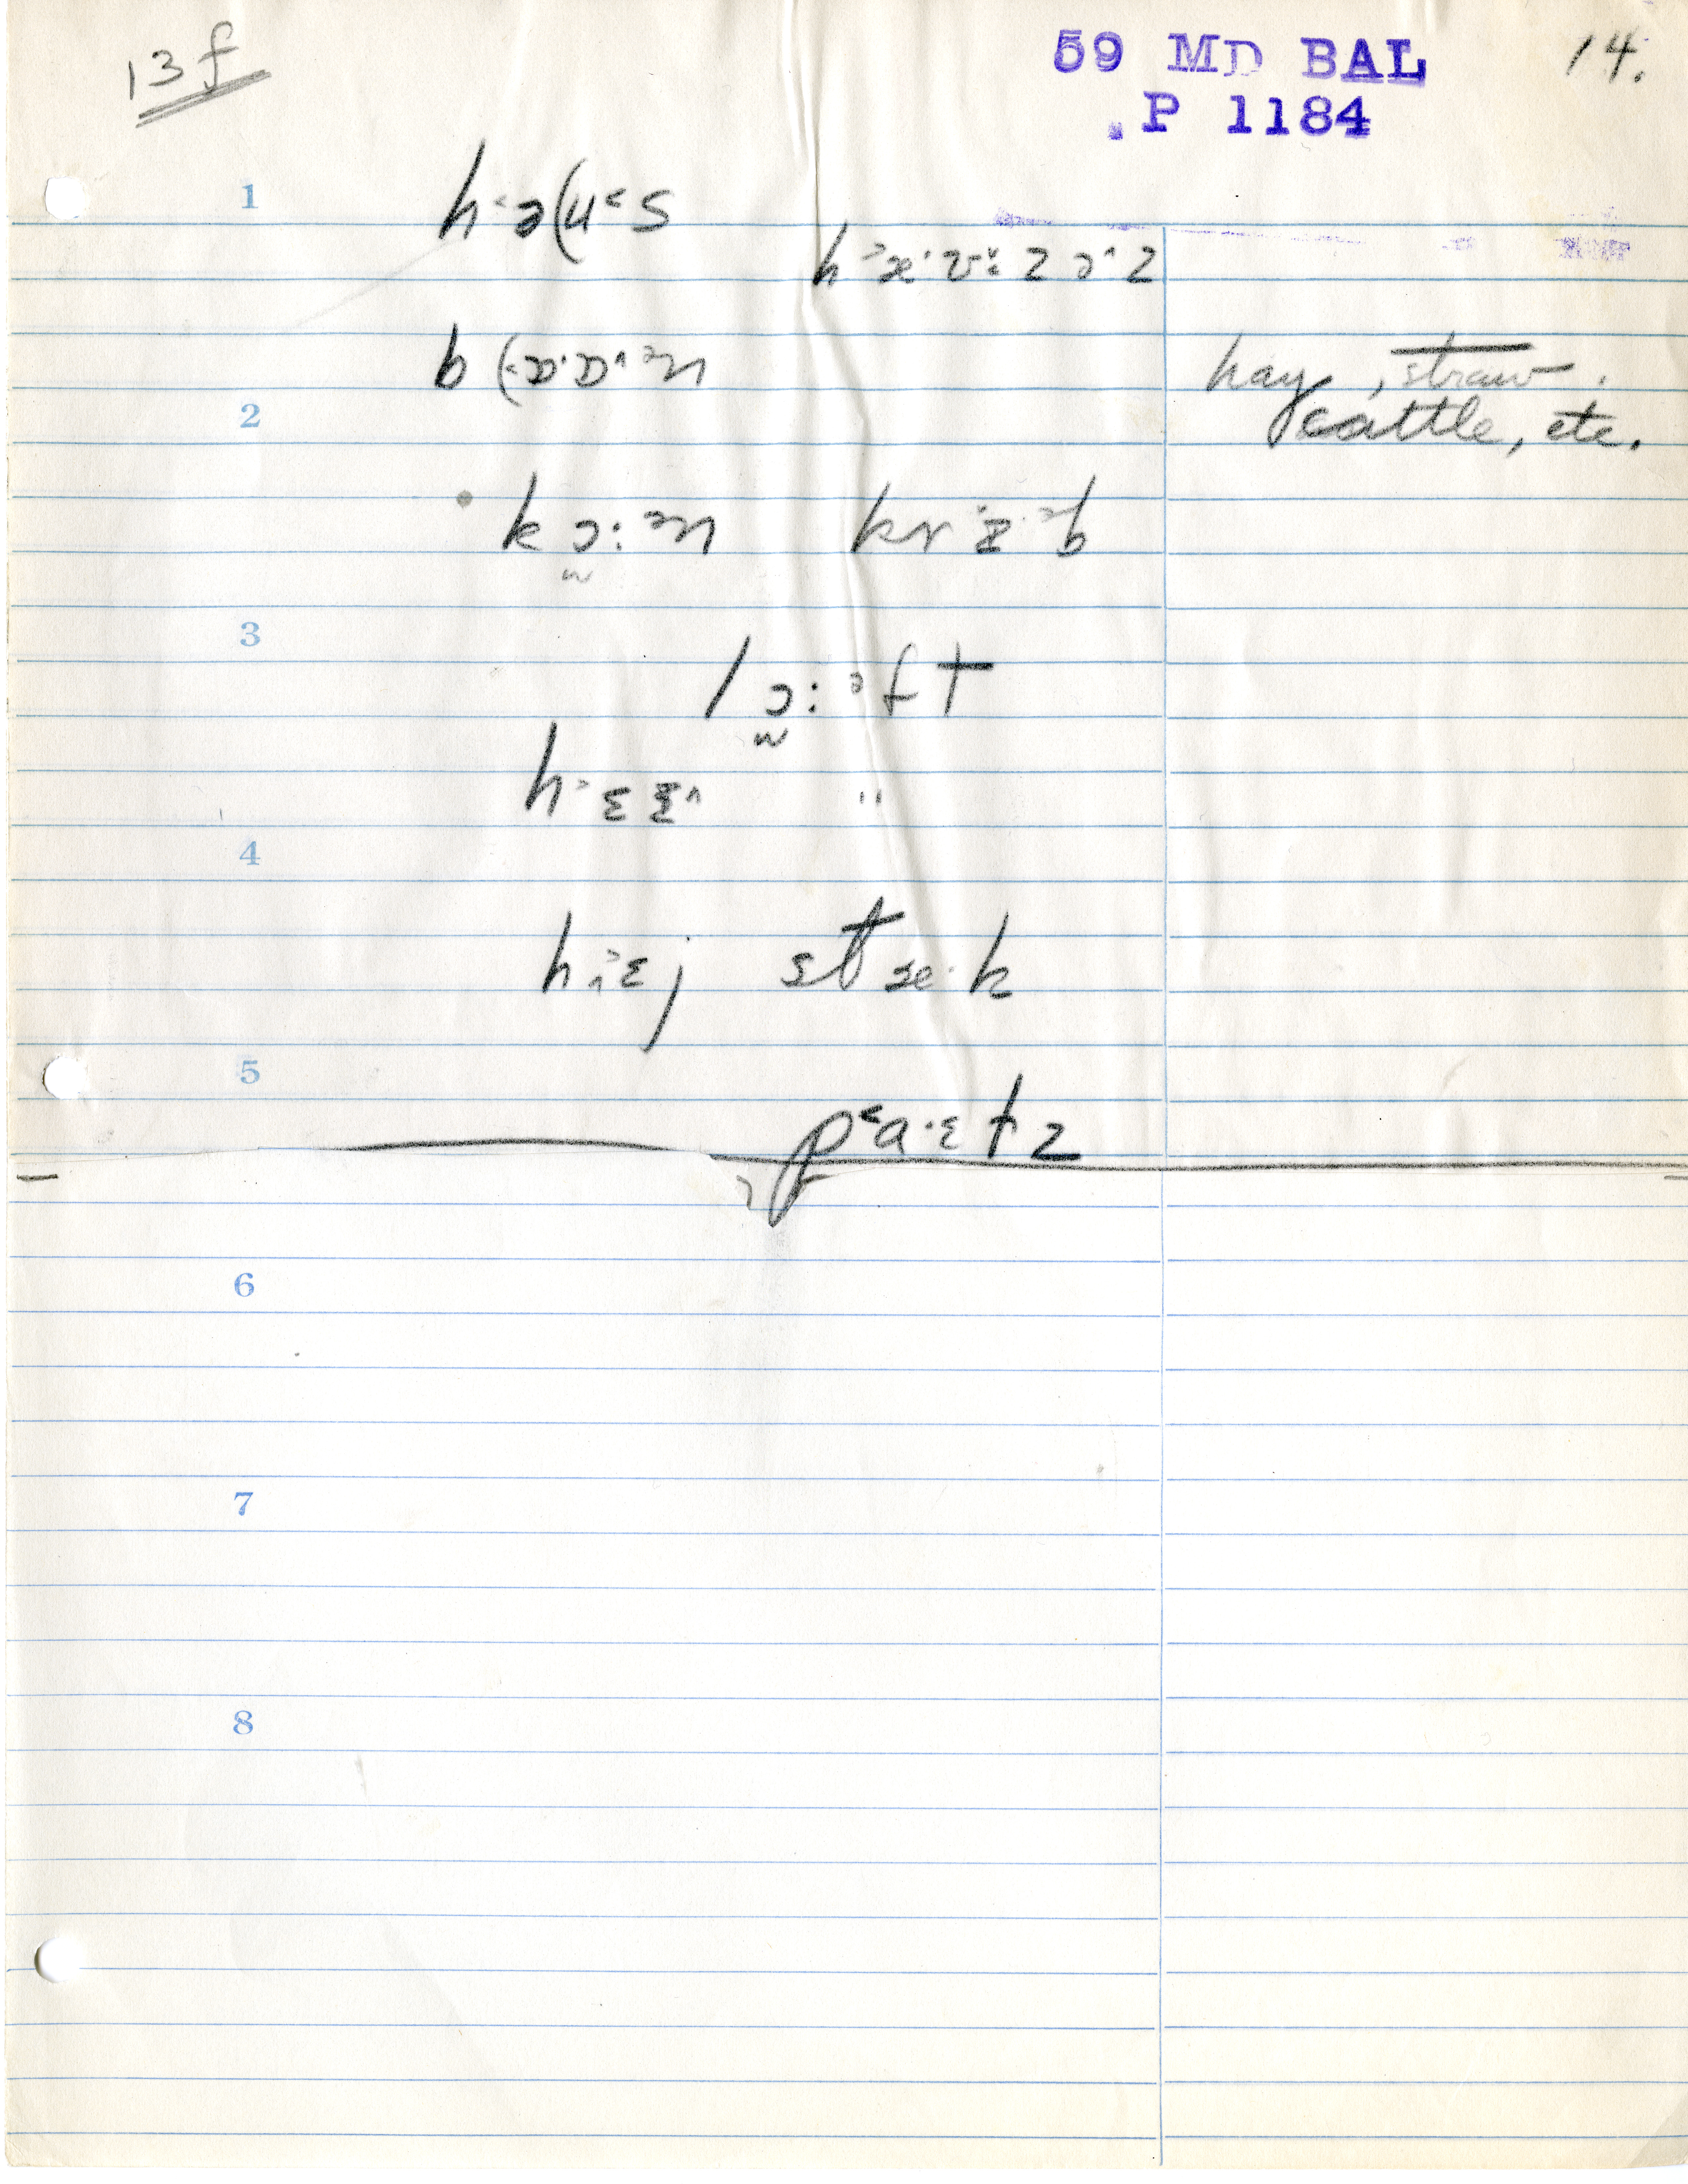 13f
59 MD BAL
P 1184
14.
1
h˂ə(u˂s
h˃æ·v·: z ə˄z
b(˂ɒ·ɒ˄ ᵊn
hay, straw.
2
cattle, etc.
k ɔ̰: ᵊn krɪ·ᵊb
3
l ɔ̰: ᵊf t
h˃ɛ ɪ˄ "
4
h ɛj stæ·k
5
p˂a·ɛ t z
6
7
8